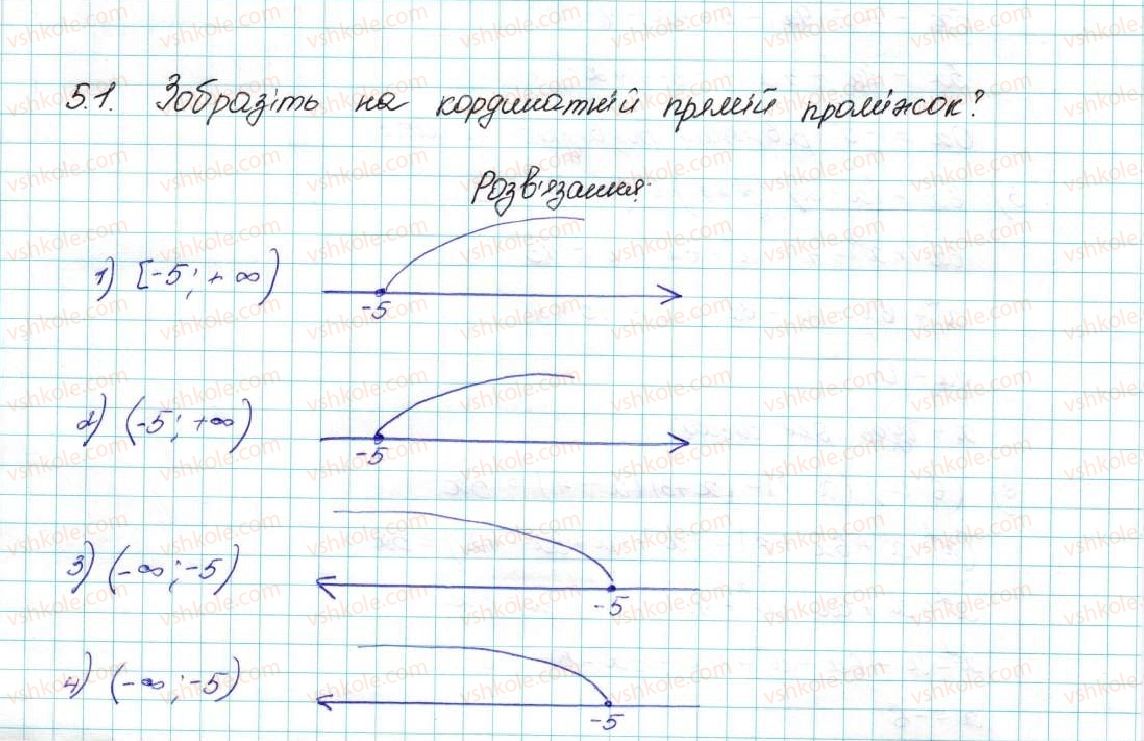 5.1. Зобразіть на кординатній прямій проміжок?
Розв'язання:
1) [-5; +∞)
-5
2) (-5; +∞)
-5
3) (-∞; -5)
-5
4) (-∞; -5)
-5